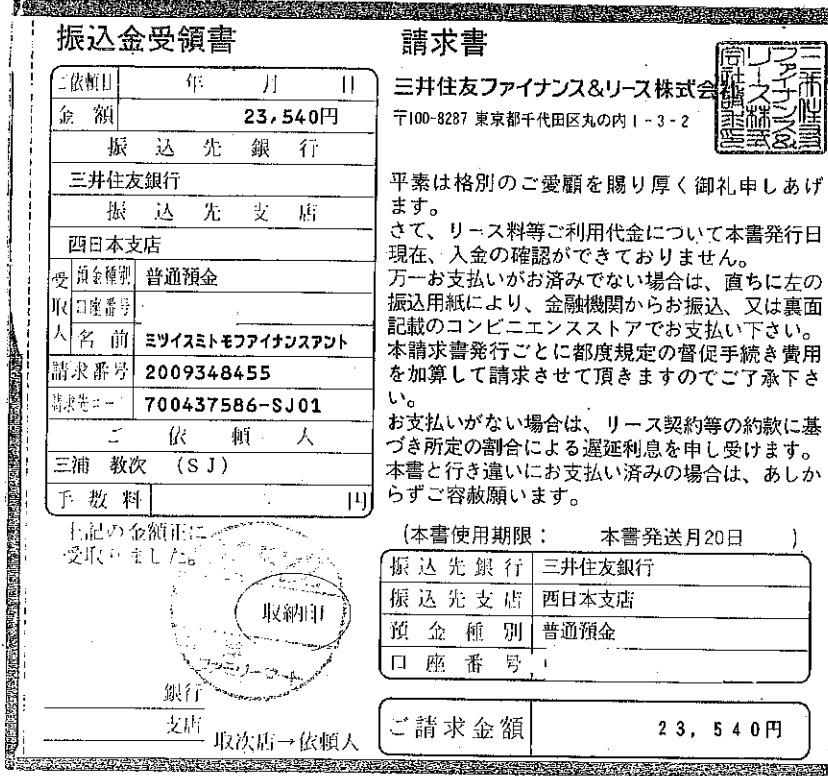 振込金受領書
ご依頼日 年 月 日
金額 23,540円
振込先銀行
三井住友銀行
振込先支店
西日本支店
受取人
預金種別 普通預金
口座番号
名前 ミツイスミトモファイナンスアント
請求番号 2009348455
請求先コード 700437586-SJ01
ご依頼人
三浦 教次 (SJ)
手数料 円
上記の金額正に
受取りました。
収納印
ファミリーマート
銀行
支店
取次店→依頼人
請求書
三井住友ファイナンス&リース株式会社
〒100-8287 東京都千代田区丸の内1-3-2
平素は格別のご愛顧を賜り厚く御礼申しあげ
ます。
さて、リース料等ご利用代金について本書発行日
現在、入金の確認ができておりません。
万一お支払いがお済みでない場合は、直ちに左の
振込用紙により、金融機関からお振込、又は裏面
記載のコンビニエンスストアでお支払い下さい。
本請求書発行ごとに都度規定の督促手続き費用
を加算して請求させて頂きますのでご了承下さ
い。
お支払いがない場合は、リース契約等の約款に基
づき所定の割合による遅延利息を申し受けます。
本書と行き違いにお支払い済みの場合は、あしか
らずご容赦願います。
(本書使用期限: 本書発送月20日 )
振込先銀行 三井住友銀行
振込先支店 西日本支店
預金種別 普通預金
口座番号
ご請求金額 23,540円